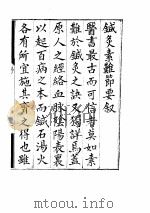 鍼灸素難節要叙
醫書最古而可信者莫如素
難於鍼灸之訣又獨詳焉蓋
原人之經絡血脉陰陽表裏
以起百病之本而鍼石湯火
各有所宜施其齊之得也雖